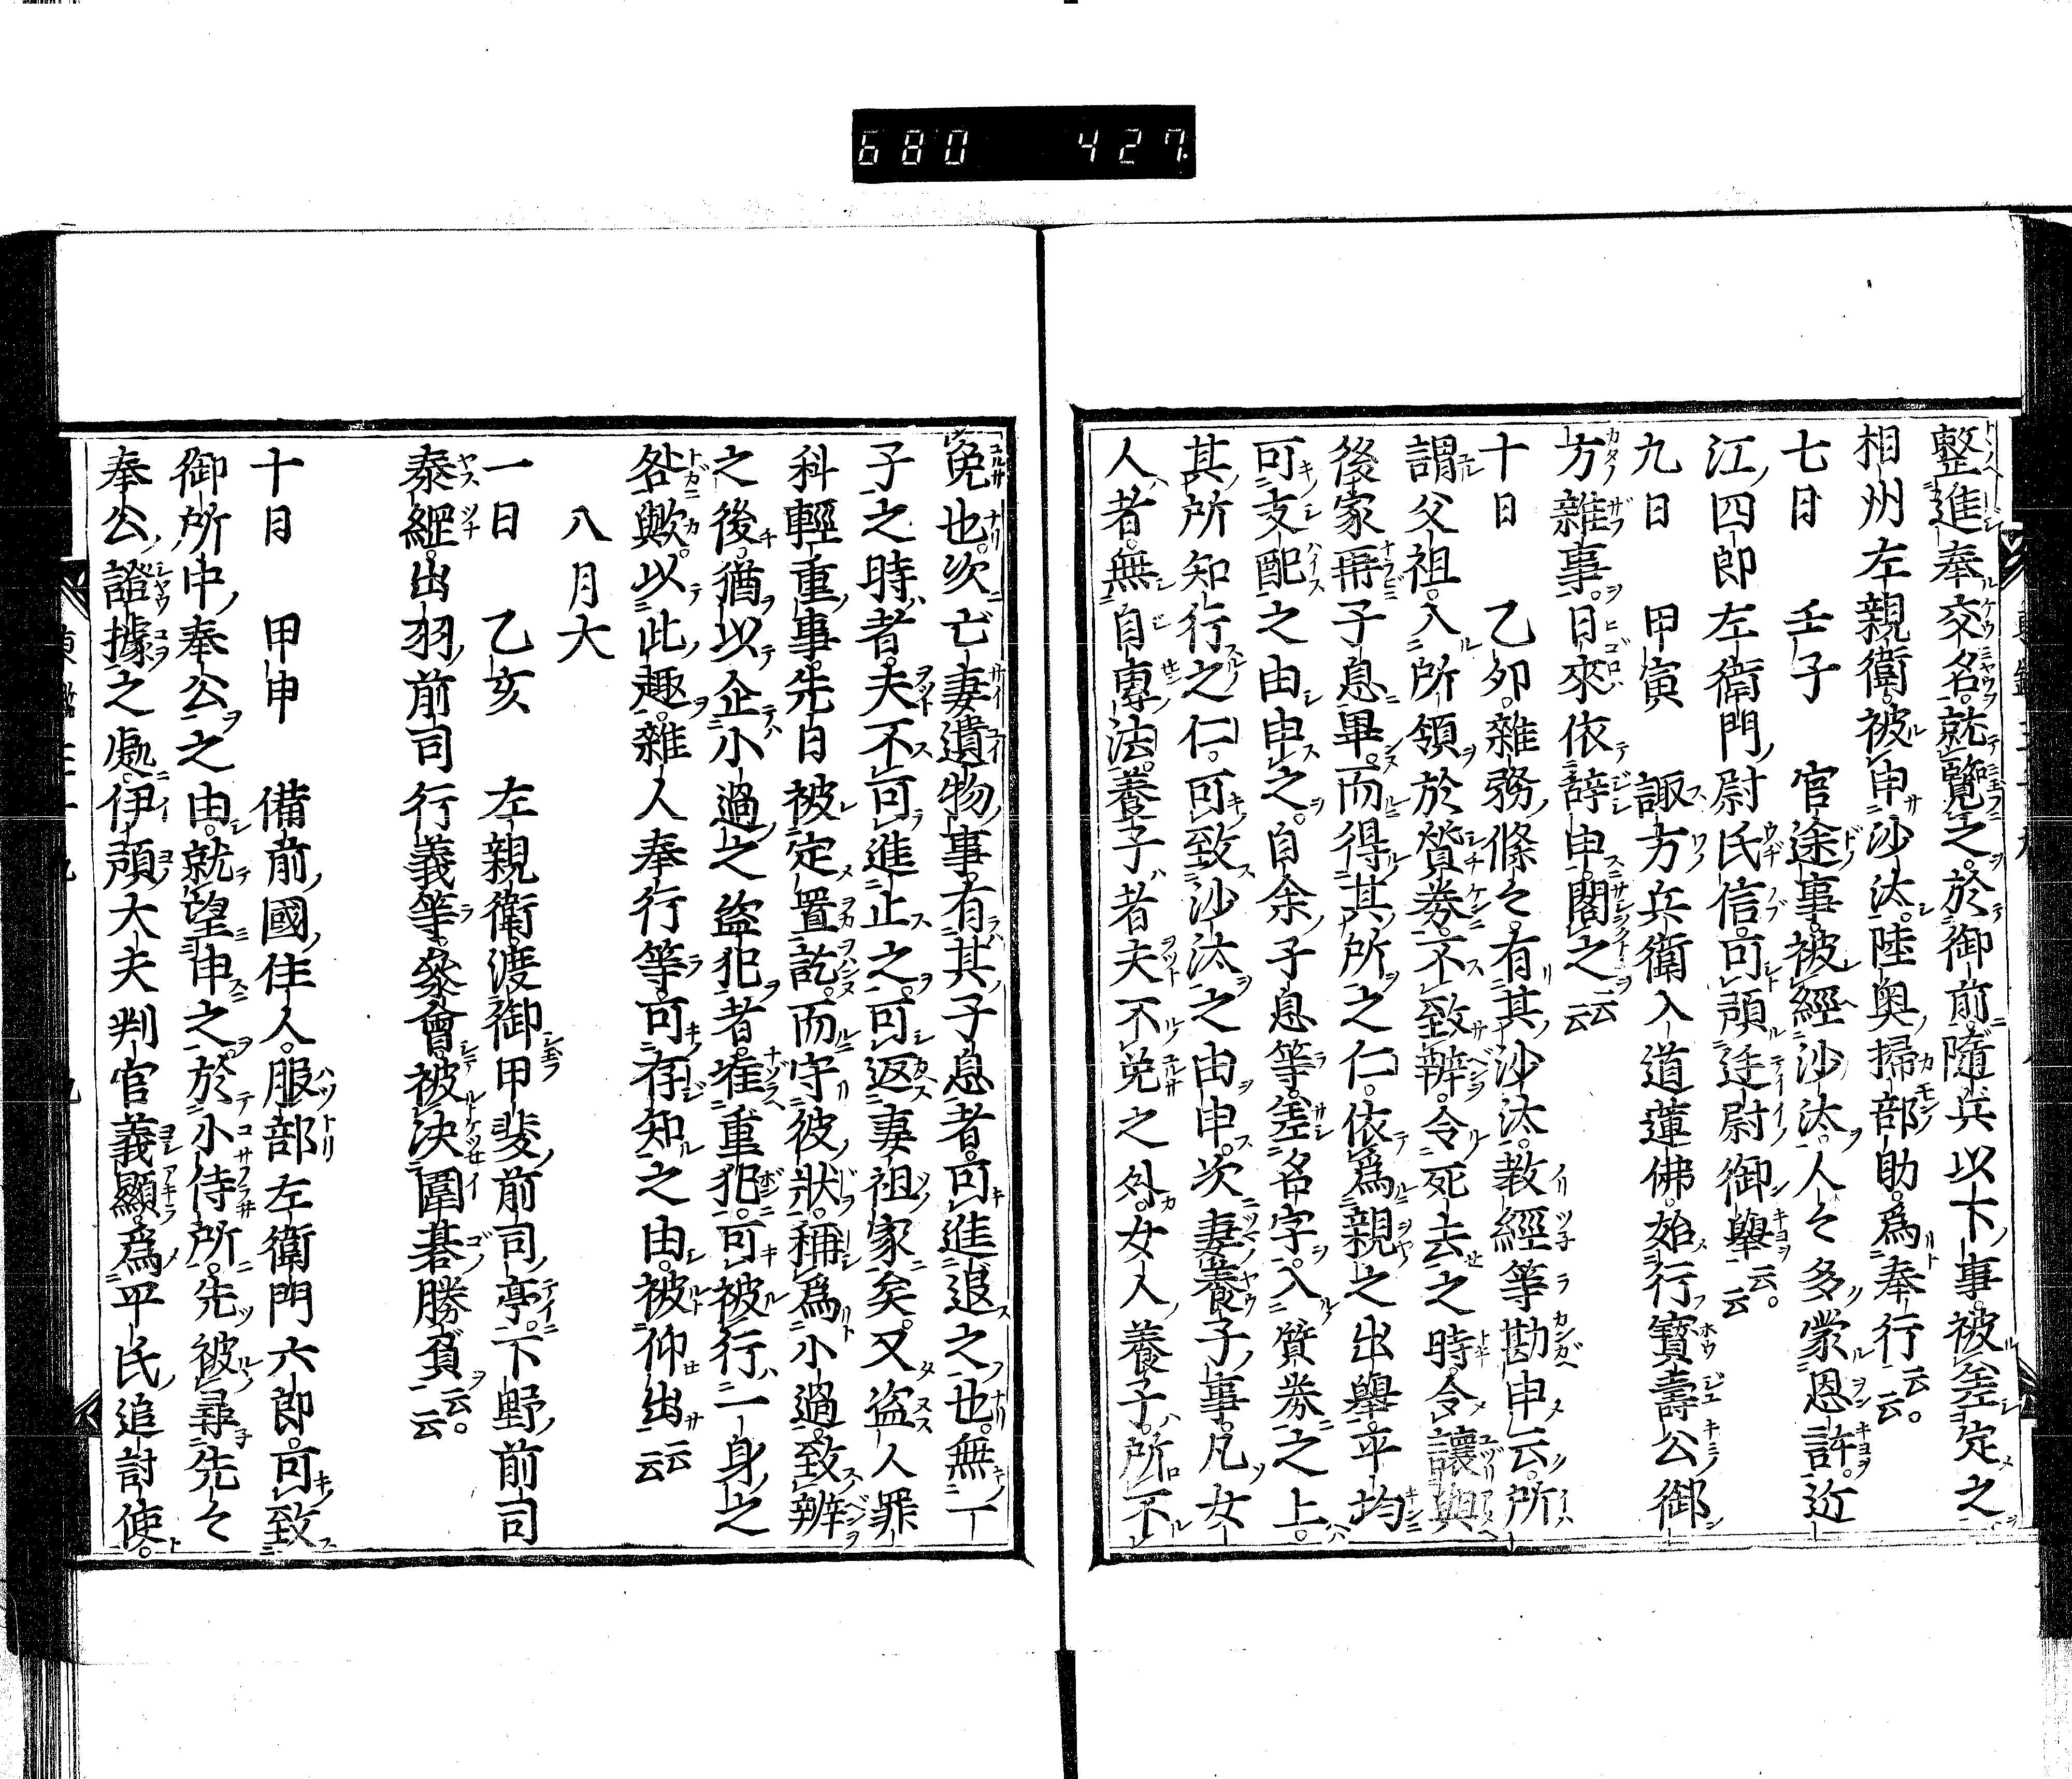 680 427
整進奉交名。就覽之。於御前隨兵以下事。被差定之
相州左親衛。被申沙汰。陸奥掃部助。爲奉行云云。
七日 壬子 官途事。被經沙汰。人々多蒙恩許。近
江四郎左衛門尉氏信。可頒廷尉御擧云云。
九日 甲寅 諏方兵衛入道蓮佛。始行寶壽公御
方雜事。日來依辞申。閣之云云
十日 乙夘。雜務條々。有其沙汰。教經等勘申云。所
謂父祖。入所領於質劵。不致辨。令死去之時。令讓與
後家并子息畢。而得其所之仁。依爲親之出擧。平均
可支配之由申之。自余子息等。差名字。入質劵之上。
其所知行之仁。可致沙汰之由申。次妻養子事。凡女
人者。無自專法。養子者夫不免之外。女人養子。所不
免也。次亡妻遺物事。有其子息者。可進退之也。無一
子之時者。夫不可進止之。可返妻祖家矣。又盗人罪
科輕重事。先日被定置訖。而守彼狀。稱爲小過。致辨
之後。猶以企小過之盗犯者。准重犯。可被行一身之
咎歟。以此趣。雜人奉行等。可存知之由。被仰出云云
八月大
一日 乙亥 左親衛渡御甲斐前司亭。下野前司
泰綱。出羽前司行義等。參會。被決圍碁勝負云云。
十日 甲申 備前國住人。服部左衛門六郎。可致
御所中奉公之由。就望申之。於小侍所。先被尋先々
奉公證據之處。伊頒大夫判官義顯。爲平氏追討使。